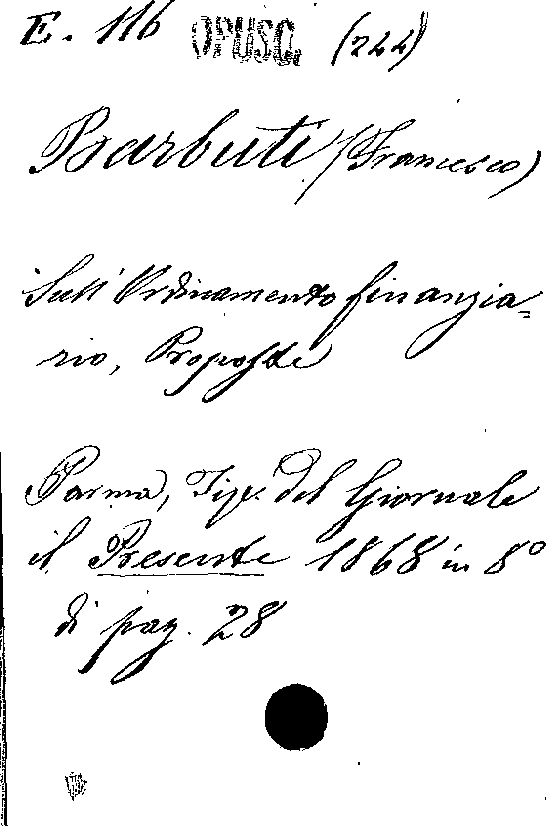 E. 116 OPUSC. (244)
Barbuti (Francesco)
Sull' Ordinamento finanzia=
rio, Proposte
Parma, Tip. del Giornale
il Presente 1868 in 8º
di pag. 28